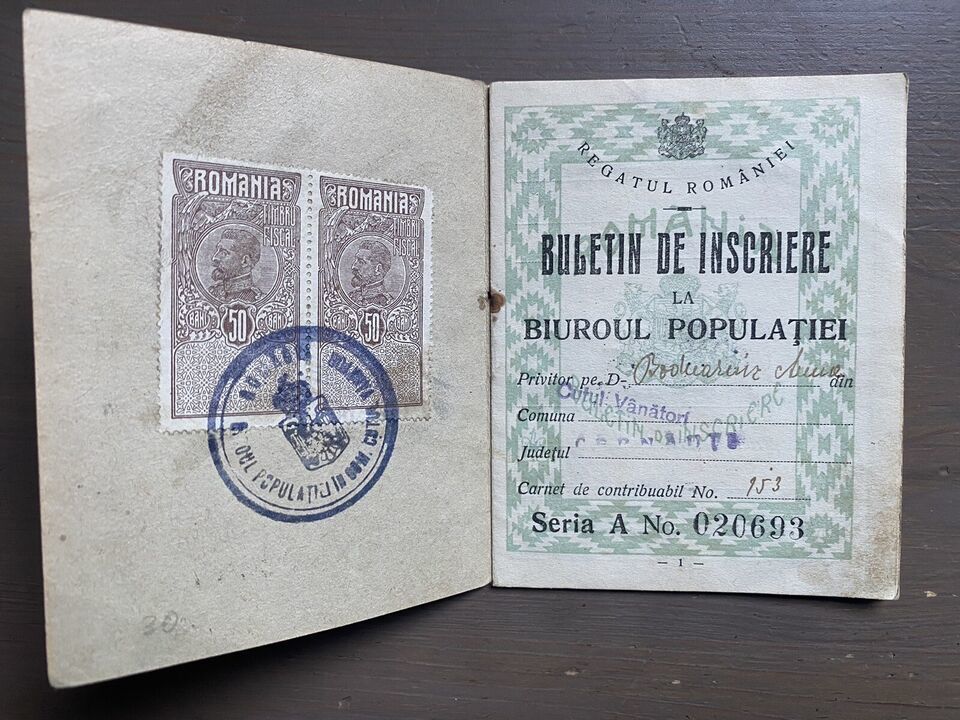 ROMANIA ROMANIA
TIMBRU TIMBRU
FISCAL FISCAL
BANI 50 BANI BANI 50 BANI
POPULAȚIEI
30
REGATUL ROMÂNIEI
BULETIN DE INSCRIERE
LA
BIUROUL POPULAȚIEI
Privitor pe D. din
Comuna Cutul Vânători
Județul
BULETIN DE INSCRIERE
Carnet de contribuabil No. 153
Seria A No. 020693
— 1 —